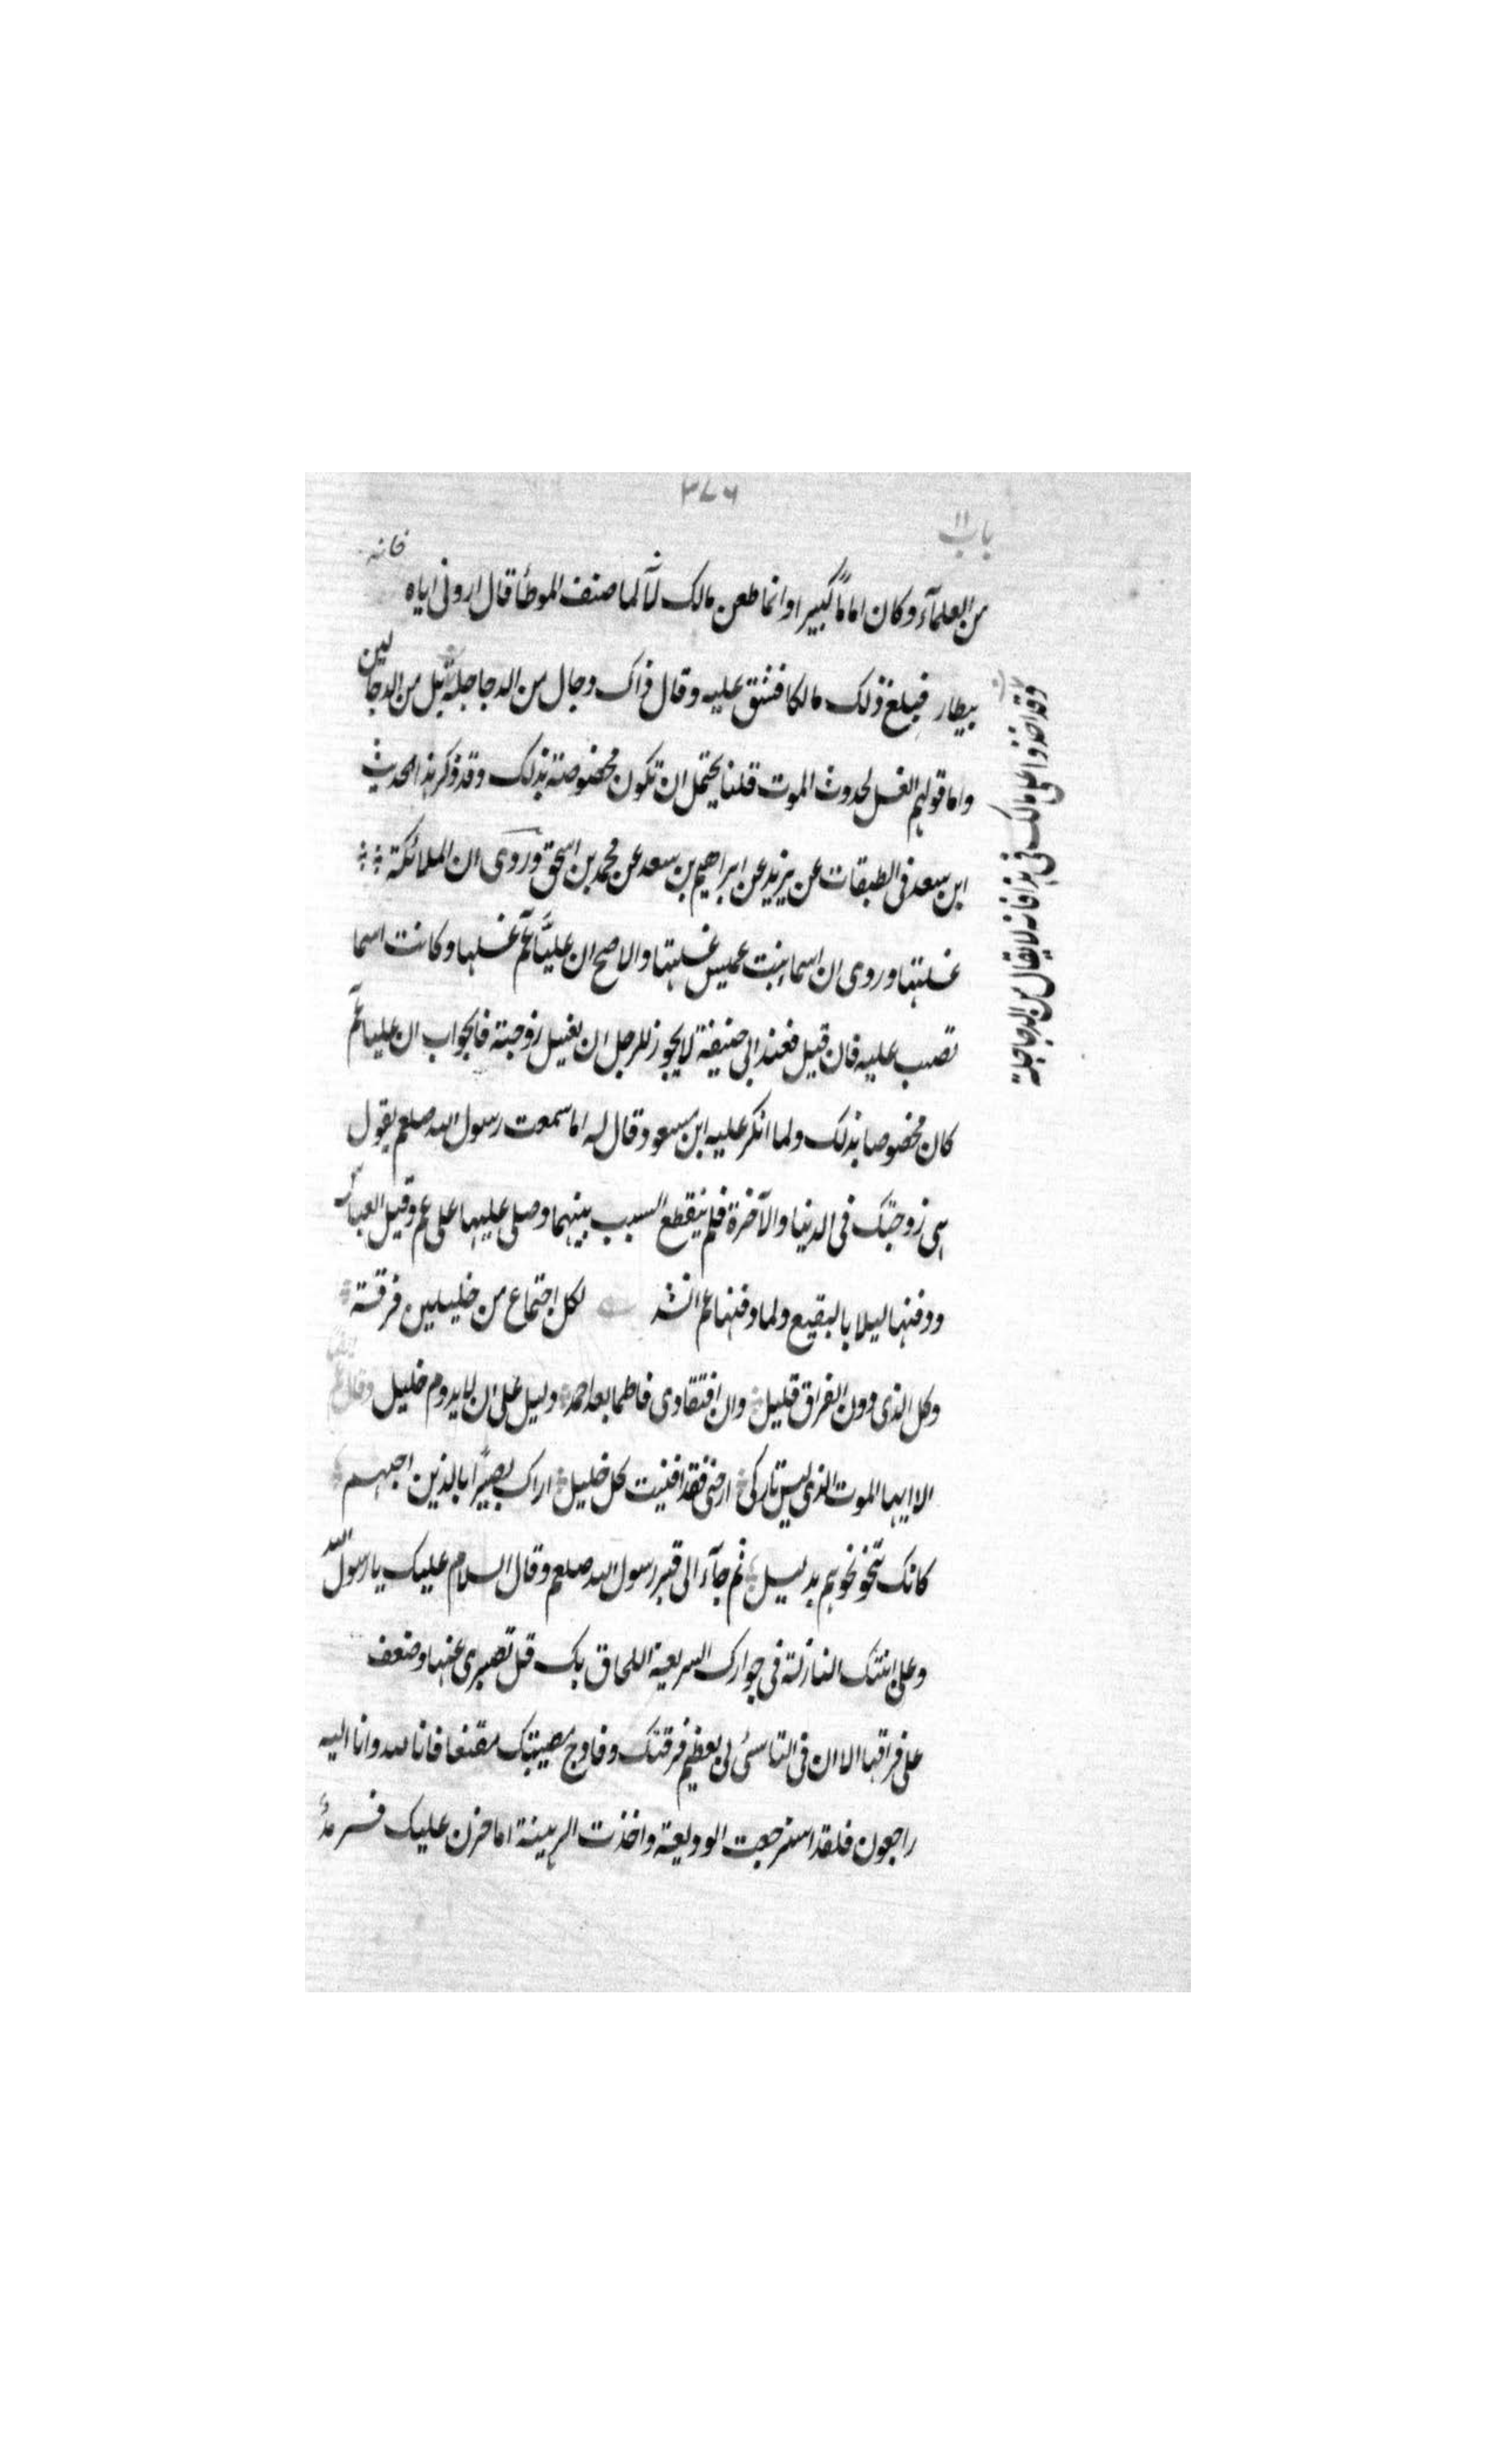 ٣٧٦
باب ١١
من العلمآء وكان اماماً كبيرا وانما طعن مالك لانّه لما صنف الموطأ قال ارونى اياه فانه
بيطار فبلغ ذلك مالكا فشق عليه وقال ذاك دجال من الدجاجلة بل من الدجالين
واما قولهم الغسل لحدوث الموت قلنا يحتمل ان تكون مخصوصة بذلك وقد ذكر هذا الحديث
ابن سعد فى الطبقات عن يزيد عن ابراهيم بن سعد عن محمد بن اسحق وروى ان الملائكة
غسلتها وروى ان اسما بنت عميس غسلتها والاصح ان علياً عم غسلها وكانت اسما
تصب عليه فان قيل فعند ابى حنيفة لا يجوز للرجل ان يغسل زوجته فالجواب ان عليا عم
كان مخصوصا بذلك ولما انكر عليه ابن مسعود قال له اما سمعت رسول الله صلعم يقول
هى زوجتك فى الدنيا والآخرة فلم ينقطع السبب بينهما وصلى عليها على عم وقيل العباس
ودفنها ليلا بالبقيع ولما دفنها عم انشد لكل اجتماع من خليلين فرقة
وكل الذى دون الفراق قليل وان افتقادى فاطما بعد احمد دليل على ان لا يدوم خليل وقال عم ايضا
الا ايها الموت الذى ليس تاركى ارحنى فقد افنيت كل خليل اراك بصيراً بالذين احبهم
كانك تنحو نحوهم بدليل ثم جآء الى قبر رسول الله صلعم وقال السلام عليك يا رسول الله
وعلى ابنتك النازلة فى جوارك السريعة اللحاق بك قل تصبرى عنها وضعف
على فراقها الا ان فى التاسى لى بعظيم فرقتك وفادح مصيبتك مقنعا فانا لله وانا اليه
راجعون فلقد استرجعت الوديعة واخذت الرهينة اما حزن عليك فسرمد
وقد اخذوا على مالك فى هذا فانه لا يقال من الدجاجلة